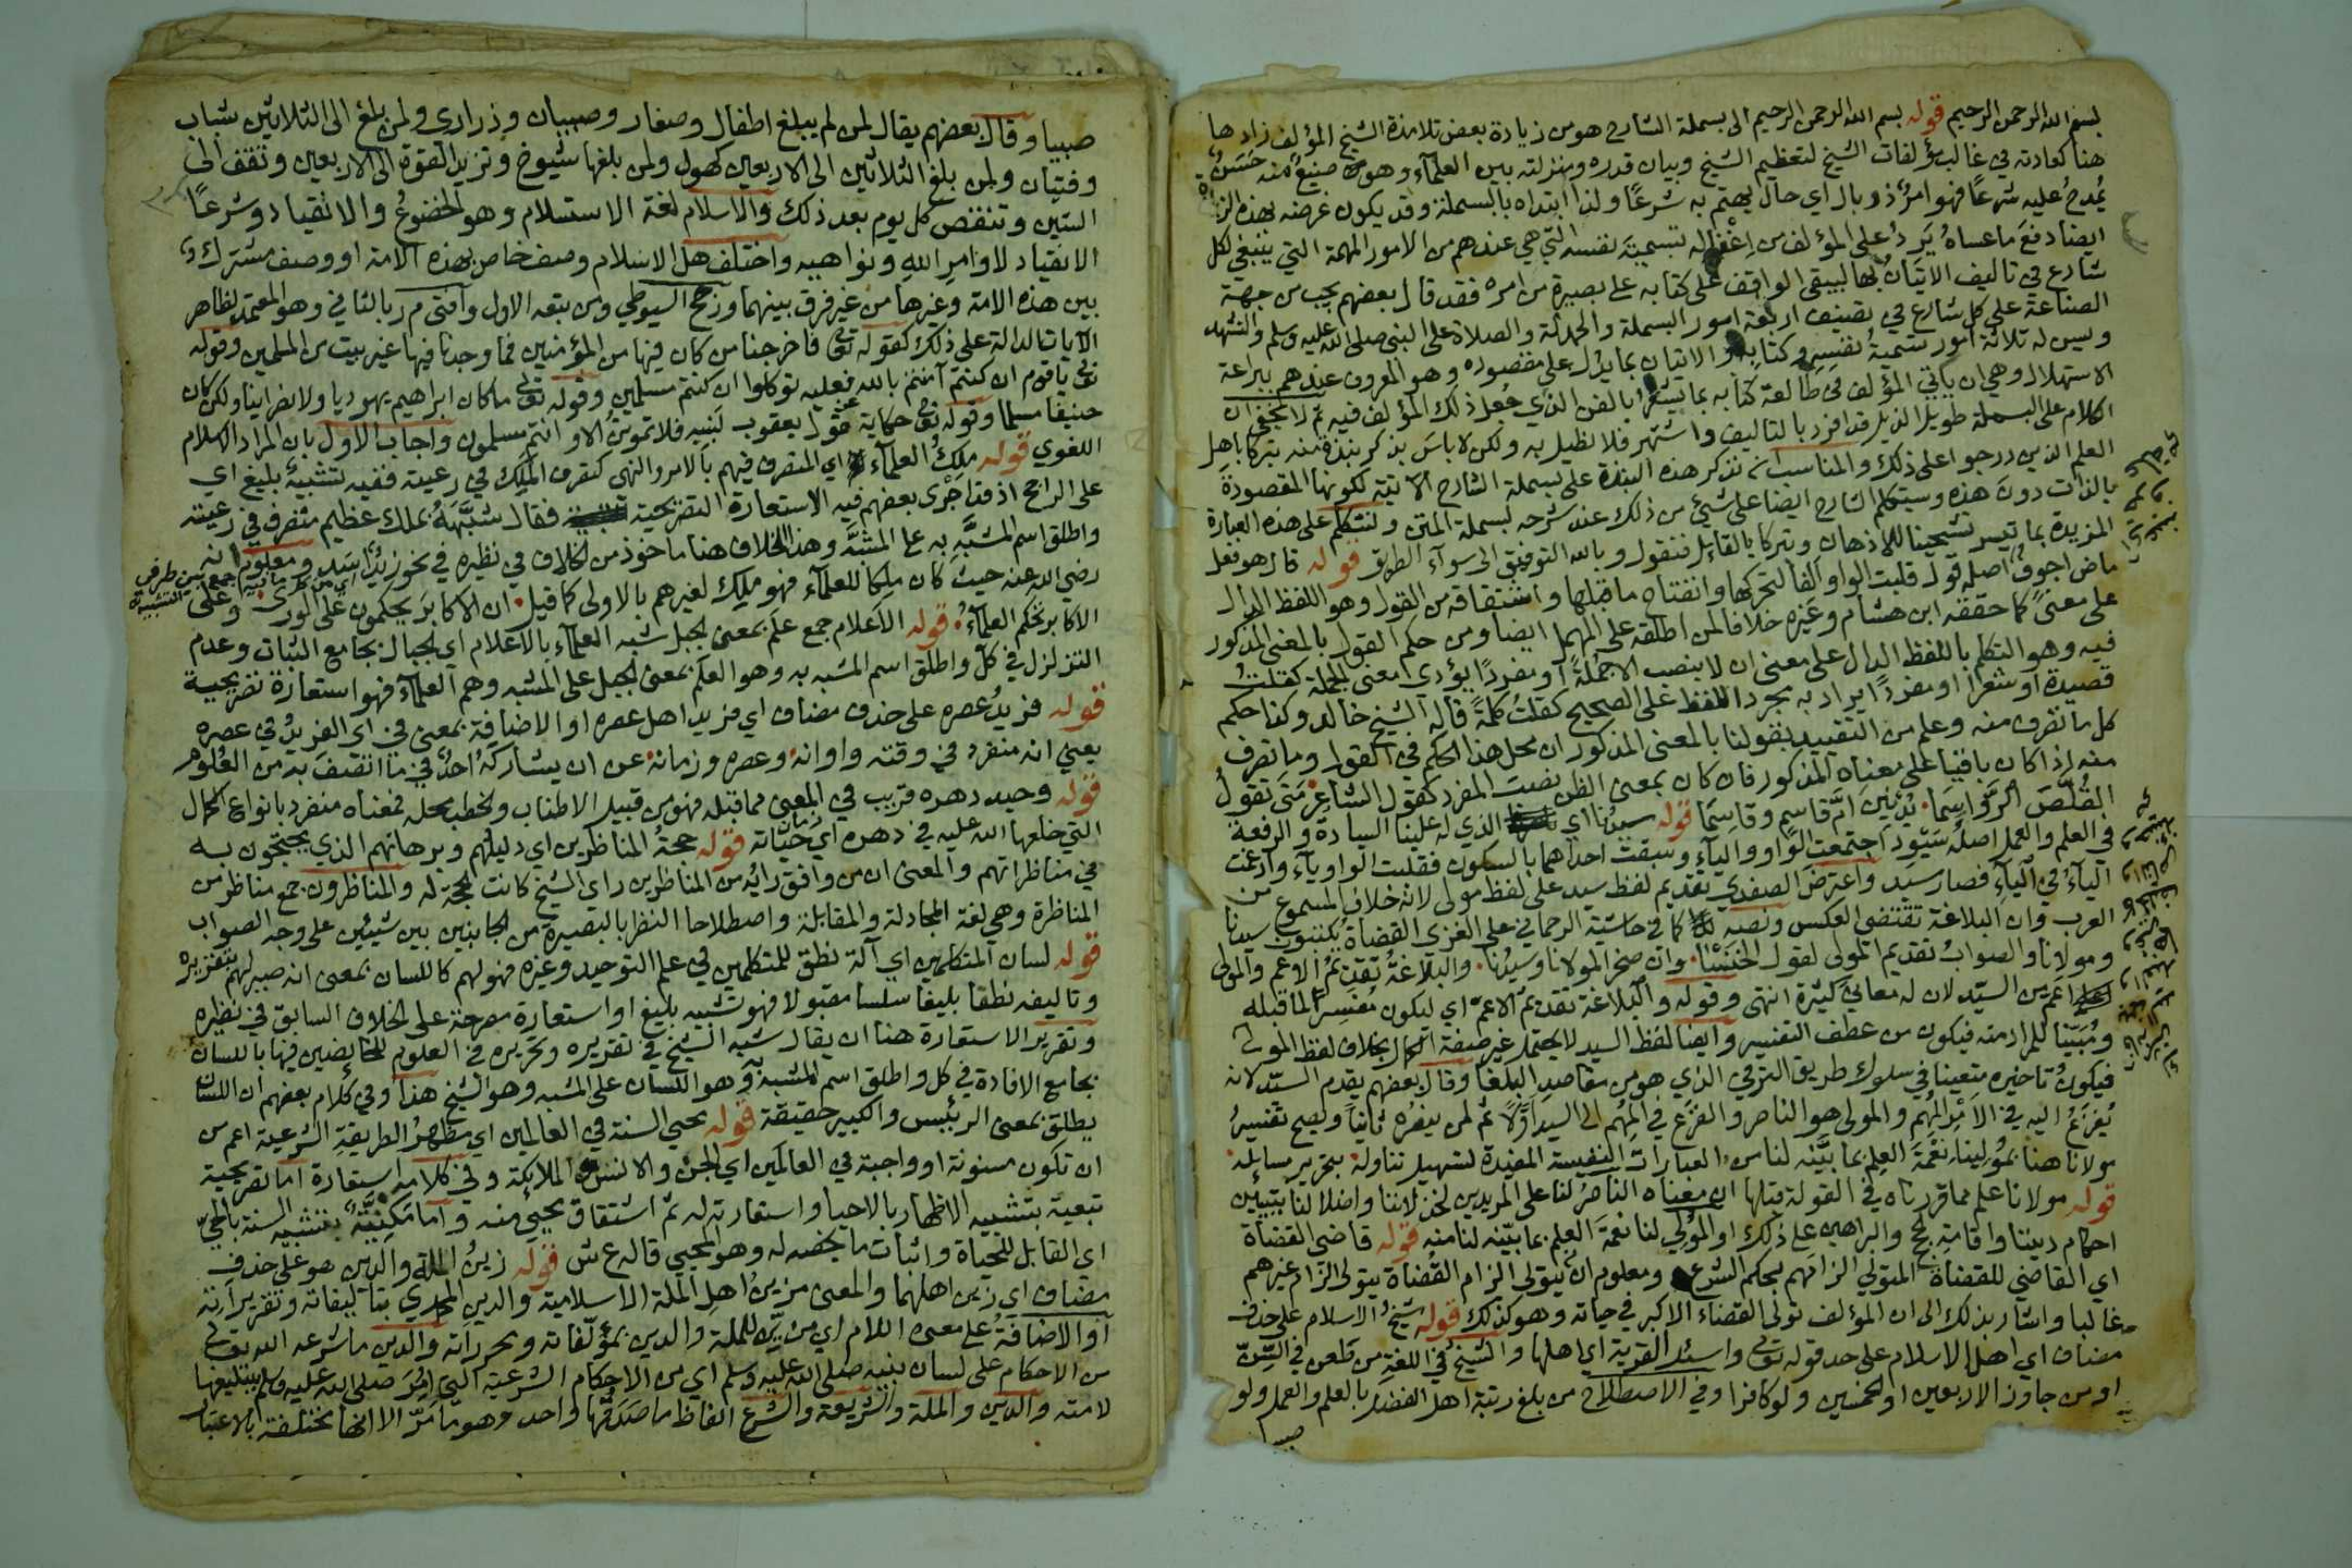 بسم الله الرحمن الرحيم قوله بسم الله الرحمن الرحيم الى بسملة الشارح هو من زيادة بعض تلامذة الشيخ المؤلف زادها
هنا كعادته في غالب مؤلفات الشيخ لتعظيم الشيخ وبيان قدره ومنزلته بين العلمآء وهو صنيع منه حسن
يُمدح عليه شرعًا فهو امرٌ ذو بال اي حال يهتم به شرعًا ولذا ابتداه بالبسملة وقد يكون غرضه بهذه
ايضا دفعَ ما عساهُ يَرِدُ على المؤلف من اغفاله تسمية نفسه التي هي عندهم من الامور المهمة التي ينبغي لكل
شارع في تاليف الاتيانُ بها ليبقى الواقف على كتابه على بصيرة من امره فقد قال بعضهم يجب من جهة
الصناعة على كل شارع في تصنيف اربعة امور البسملة والحمدلة والصلاة على النبي صلى الله عليه وسلم والتشهد
ويسن له ثلاثة امور تسمية نفسِهِ وكتابِه والاتيان بما يدل على مقصوده وهو المعروف عندهم ببراعة
الاستهلال وهي ان ياتي المؤلف في طالعة كتابه بما يشعر بالفن الذي جُعل ذلك المؤلف فيه ثم لا يخفى ان
الكلام على البسملة طويل الذيل قد افرد بالتاليف واشتهر فلا نطيل به ولكن لا باسَ بذكر نبذة منه تبركا باهل
العلم الذين درجوا على ذلك والمناسب ان نذكر هذه النبذة على بسملة الشارح الآتية لكونها المقصودةَ
بالذات دونَ هذه وسيتكلم الشارح ايضا على شيئ من ذلك عند شرحه لبسملة المتن ولنتكلم على هذه العبارة
المزيدة بما تيسر تشحيذا للاذهان وتبركا بالقائل فنقول وبالله التوفيق الى سوآء الطريق قوله قال هو فعل
ماض اجوفُ اصله قول قلبت الواو الفا لتحركها وانفتاح ما قبلها واشتقاقه من القول وهو اللفظ الدال
على معنىً كما حققه ابن هشام وغيره خلافا لمن اطلقه على المهمل ايضا ومن حكم القول بالمعنى المذكور
فيه وهو التكلم باللفظ الدال على معنى ان لا ينصب الا جُملةً او مفردًا يؤدي معنى الجملة كقلتُ
قصيدة او شعرًا او مفردًا يراد به مجرد اللفظ على الصحيح كقلتُ كلمةً قاله الشيخ خالد وكذا حكم
كل ما تصرف منه وعلم من التقييد بقولنا بالمعنى المذكور ان محل هذا الحكم في القول وما تصرف
منه اذا كان باقيًا على معناه المذكور فان كان بمعنى الظن نصبَ المفرد كقول الشاعر مَتَى تقولُ
القُلُصَ الرَّواسِما يُدْنينَ امَّ قاسمٍ وقاسِمَا قوله سيدُنا اي الذي له علينا السيادة والرفعة
في العلم والعمل اصلُه سَيْوِد اجتمعت الواو واليآء وسبقت احداهما بالسكون فقلبت الواو يآء وادغمت
اليآءُ في اليآءِ فصار سيّد واعترض الصفدي تقديم لفظ سيد على لفظ مولى لانه خلاف المسموع من
العرب وان البلاغة تقتضي العكس ونصه كما في حاشية الرحماني على الغزي القضاة يكتبون سيدنا
ومولانا والصوابُ تقديم المولى لقول الخنسا وان صخر المولانا وسيدُنا والبلاغةُ تقديمُ الاعم والمولى
اعم من السيّد لان له معاني كثيرة انتهى وقوله والبلاغة تقديم الاعمّ اي ليكون مُفسِّرا لما قبله
ومُبيّنا للمراد منه فيكون من عطف التفسير وايضا لفظ السيد لا يحتمل غير صفة الكمال بخلاف لفظ المولى
فيكونُ تاخيره متعينا في سلوك طريق الترقي الذي هو من مقاصد البلغا وقال بعضهم يقدم السيّد لانه
يُفزعُ اليه في الامْرِ المُهم والمولى هو الناصر والفزع في المُهم الى السيد اوّلًا ثم لمن ينصره ثانيًا ويصح تفسيرُ
مولانا هنا بمُوليِنا نعْمَةَ العلمِ بما بيَّنه لنا من العبارات النفيسة المفيدة لتسهيل تناوله بتحرير مسائله
قوله مولانا علم مما قررناه في القولة قبلها ان معناه الناصرُ لنا على المريدين لخذلاننا واضلالنا بتبيين
احكام ديننا واقامةِ الحجج والبراهين على ذلك او المُولي لنا نعمةَ العلم بما بيّنه لنا منه قوله قاضي القضاة
اي القاضي للقضاة المتولي الزامَهم بحكم الشرع ومعلوم ان من يتولى الزام القُضاة يتولى الزام غيرهم
غالبا واشار بذلك الى ان المؤلف تولى القضاء الاكبر في حياته وهو كذلك قوله شيخُ الاسلام على حذف
مضاف اي اهل الاسلام على حد قوله تعالى واسئل القرية اي اهلها والشيخ في اللغةِ من طعن في السِّنّ
او من جاوز الاربعين او الخمسين ولو كافرا وفي الاصطلاح من بلغ رتبة اهل الفضل بالعلم والعمل ولو
صبيا
صبيا وقال بعضهم يقال لمن لم يبلغ اطفال وصغار وصبيان وذراري ولمن بلغ الى الثلاثين شباب
وفتيان ولمن بلغ الثلاثين الى الاربعين كهول ولمن بلغها شيوخ وتزيد القوة الى الاربعين وتقف الى
الستين وتنقص كل يوم بعد ذلك والاسلام لغة الاستسلام وهو الخضوعُ والانقياد وشرعًا
الانقياد لاوامرِ اللهِ ونواهيه واختلف هل الاسلام وصف خاص بهذه الامة او وصف مشترك
بين هذه الامة وغيرها من غير فرق بينهما ورجح السيوطي ومن تبعه الاول وافتى م ر بالثاني وهو المعتمد لظاهر
الآيات الدالة على ذلك كقوله تعالى فاخرجنا من كان فيها من المؤمنين فما وجدنا فيها غير بيت من المسلمين وقوله
تعالى يا قوم ان كنتم آمنتم بالله فعليه توكلوا ان كنتم مسلمين وقوله تعالى ما كان ابراهيم يهوديا ولا نصرانيا ولكن كان
حنيفا مسلما وقوله تعالى حكاية عن قول يعقوب لبنيه فلا تموتنّ الا وانتم مسلمون واجاب الاول بان المراد الاسلام
اللغوي قوله ملِكُ العلمآء اي المتصرف فيهم بالامر والنهي كتصرف المَلِكِ في رعيته ففيه تشبيهٌ بليغ اي
على الراجح اذ قد اجْرى بعضهم فيه الاستعارة التصريحية فقال شبَّهَهُ بملك عظيم متصرف في رعيته
واطلق اسم المشبَّه به على المشبَّه وهذا الخلاف هنا ماخوذ من الخلاف في نظيره في نحو زيدٌ اسَد ومعلوم انه
رضي الله عنه حيث كان مَلِكا للعلمآء فهو ملِك لغيرهم بالاولى كما قيل ان الاكابرَ يحكمون على الورى وعلى
الاكابر تحكم العلمآءُ قوله الاعلام جمع علَم بمعنى الجبل شبه العلمآء بالاعلام اي الجبال بجامع الثبات وعدم
التزلزل في كلّ واطلق اسم المشبه به وهو العلَم بمعنى الجبل على المشبه وهم العلمآء فهو استعارة تصريحية
قوله فريدُ عصره على حذف مضاف اي فريد اهل عصره او الاضافة بمعنى في اي الفريدُ في عصره
يعني انه منفرد في وقته واوانه وعصره وزمانه عن ان يشاركَهُ احدٌ في ما اتصفَ به من العُلوم
قوله وحيد دهره قريب في المعنى مما قبله فهو من قبيل الاطناب والخطب محله فمعناه منفرد بانواع الكمال
التي خلعها الله عليه في دهره اي حياته قوله حجةُ المناظرين اي دليلهم وبرهانهم الذي يحتجون به
في مناظراتهم والمعنى ان من وافق رائُه من المناظرين راي الشيخ كانت الحجة له والمناظرون جمع مناظر من
المناظرة وهي لغة المجادلة والمقابلة واصطلاحا النظر بالبصيرة من الجانبين بين شيئين على وجه الصواب
قوله لسان المتكلمين اي آلة نطق للمتكلمين في علم التوحيد وغيره فهو لهم كاللسان بمعنى انه صيرلهم بتقريره
وتاليفه نطقا بليغا سلسا مقبولا فهو تشبيه بليغ او استعارة مصرحة على الخلاف السابق في نظيره
وتقرير الاستعارة هنا ان يقال شبه الشيخ في تقريره وتحريره في العلوم للخائضين فيها باللسان
بجامع الافادة في كل واطلق اسم المشبه به وهو اللسان على المشبه وهو الشيخ هذا وفي كلام بعضهم ان اللسان
يطلق بمعنى الرئيس والكبير حقيقة قوله محيي السنة في العالمين اي مظهرُ الطريقةِ الشرعية اعم من
ان تكون مسنونة او واجبة في العالمين اي الجن والانس والملائكة وفي كلامه استعارة اما تصريحية
تبعية بتشبيه الاظهار بالاحيا واستعارته له ثم اشتقاق محيي منه واما مَكنيّةً بتشبيه السنة بالحيّ
اي القابل للحياة واثبات ما يخصه له وهو المحيي قاله ع ش قوله زينُ الملة والدين هو على حذف
مضاف اي زين اهلهما والمعنى مزينُ اهلِ الملة الاسلامية والدين المحمدي بتاليفاته وتقريراته
او الاضافةُ على معنى اللام اي مزيّن للملة والدين بمؤلفاته وتحرراته والدين ما شرعه الله تعالى
من الاحكام على لسان نبيه صلى الله عليه وسلم اي من الاحكام الشرعية التي اُمِرَ صلى الله عليه وسلم بتبليغها
لامته والدين والملة والشريعة والشرع الفاظ ما صَدَقُها واحد وهو ما مرّ الا انها مختلفة بالاعتبار